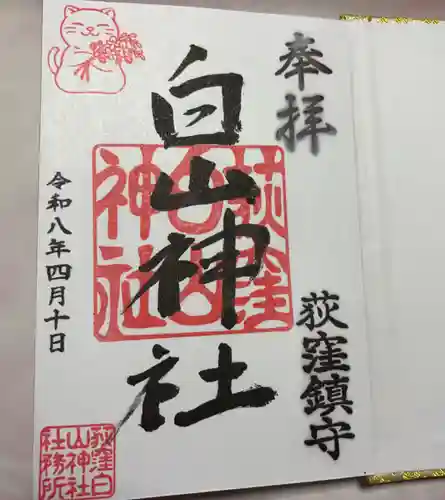 奉拝
荻窪鎮守
白山神社
荻窪白山神社
令和八年四月十日
荻窪白山神社社務所